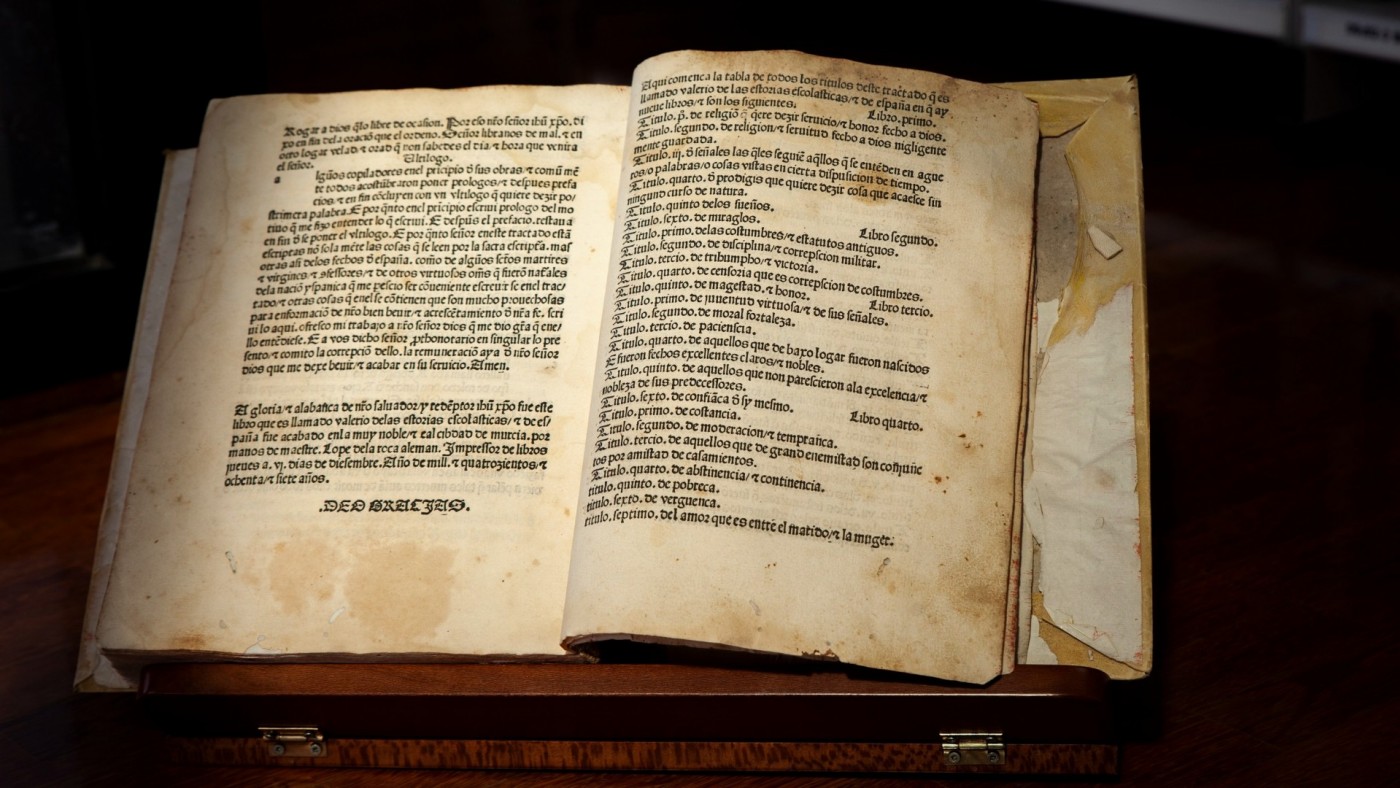 Rogar a dios q̃lo libre de ocasion. Por eso nr̃o señor ihũ xp̃o. di
xo en fin dela oraciõ que el ordeno. Señor libranos de mal. ⁊ en
otro logar velad ⁊ orad q̃ non sabedes el dia ⁊ hora que venira
el señor.
Ultilogo.
a
lgũos copiladores enel prĩcipio õ sus obras ⁊ comũ mẽ
te todos acostũbraron poner prologos/⁊ despues prefa
cios. ⁊ en fin cõcluyen con vn vltilogo q̃ quiere dezir po/
strimera palabra. E por q̃nto enel prĩcipio escriui prologo del mo
tiuo q̃ me fizo entender lo q̃ escriui. E despũs el prefacio. restaua
en fin õ se poner el vltilogo. E por q̃nto señor eneste tractado estã
escriptas nõ sola mẽte las cosas q̃ se leen por la sacra escriptẽa. mas
otras asi delos fechos õ españa. como de algũos sẽtos martires
⁊ virgines ⁊ ꝯfessores/⁊ de otros virtuosos om̃s q̃ fuerõ nat̃ales
dela naciõ yspanica q̃ me pescio ser cõueniente escreuir se enel trac/
tado/⁊ otras cosas q̃ enel se cõtienen que son mucho prouechosas
para enformaciõ de nr̃o bien beuir/⁊ acrescẽtamiento õ nr̃a fe. scri
ui lo aqui. ofresco mi trabajo a nr̃o señor dios q̃ me dio gr̃a q̃ que/
llo entẽdiese. E a vos dicho señor ꝓbonotario en singular lo pre
sento/⁊ comito la correpciõ dello. la remuneraciõ aya õ nr̃o señor
dios que me dexe beuir/⁊ acabar en su seruicio. Amen.
A gloria/⁊ alabãça de nr̃o saluador/y redẽptor ihũ xp̃o fue este
libro que es llamado valerio delas estorias escolasticas/⁊ de es/
paña fue acabado enla muy noble/⁊ leal cibdad de murcia. por
manos de maestre. Lope dela roca aleman. Impressor de libros
jueues a. vj. dias de diesembre. Año de mill. ⁊ quatrozientos/⁊
ochenta/⁊ siete años.
.DEO GRACIAS.
Aqui comença la tabla de todos los titulos deste tractado q̃ es
llamado valerio de las estorias escolasticas/⁊ de españa en q̃ ay
nueue libros/⁊ son los siguientes.
Libro. primo.
Titulo. p̃. de religiõ q̃ q̃ere dezir seruicio/⁊ honor fecho a dios.
Titulo. segundo. de religion/⁊ seruitud fecho a dios nigligente
mente guardada.
Titulo. iij. õ señales las q̃les seguiẽ aq̃llos q̃ se entẽden en ague
ros/o palabras/o cosas vistas en cierta dispusicion de tiempo.
Titulo. quarto. õ prodigis que quiere dezir cosa que acaesce sin
ningund curso de natura.
Titulo. quinto delos sueños.
Titulo. sexto. de miraglos.
Libro segundo.
Titulo. primo. delas costumbres/⁊ estatutos antiguos.
Titulo. segundo. de disciplina/⁊ correpscion militar.
Titulo. tercio. de tribumpho/⁊ victoria.
Titulo. quarto. de censoria que es correpscion de costumbres.
Titulo. quinto. de magestad. ⁊ honor.
Libro tercio.
Titulo. primo. de juuentud virtuosa/⁊ de sus señales.
Titulo. segundo. de moral fortaleza.
Titulo. tercio. de paciensia.
Titulo. quarto. de aquellos que de baxo logar fueron nascidos
E fueron fechos excellentes claros/⁊ nobles.
Titulo. quinto. de aquellos que non parescieron ala excelencia/⁊
nobleza de sus predecessores.
Titulo. sexto. de confiãca õ sy mesmo.
Libro quarto.
Titulo. primo. de costancia.
Titulo. segundo. de modcracion/⁊ temprança.
Titulo. tercio. de aquellos que de grand enemistad son cõjũtic
tos por amistad de casamientos.
Titulo. quarto. de abstinencia/⁊ continencia.
titulo. quinto. de pobreca.
titulo. sexto. de verguença.
titulo. septimo. del amor que es entre el marido/⁊ la muger.